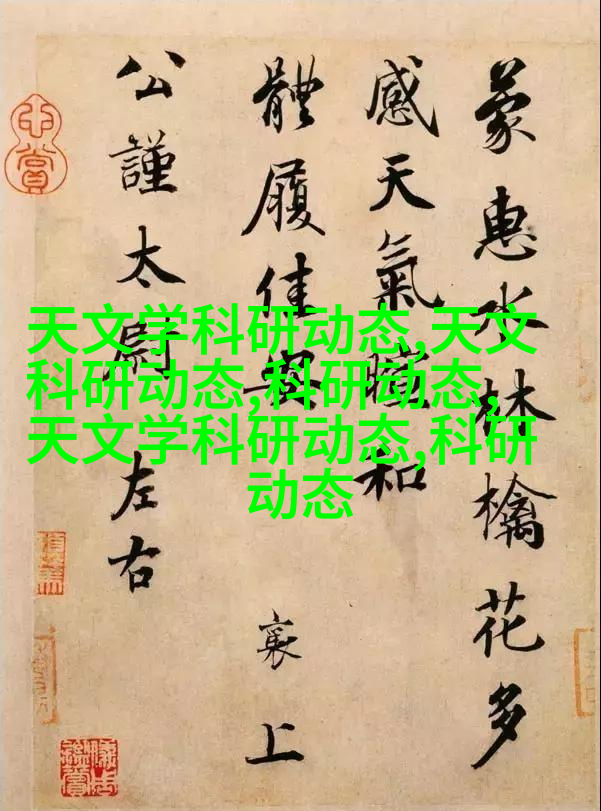 蒙惠水林檎花多
感天氣暄和
體履佳安 襄上
公謹太尉左右
天文学科研动态,天文
科研动态,科研动态,
天文学科研动态,科研
动态